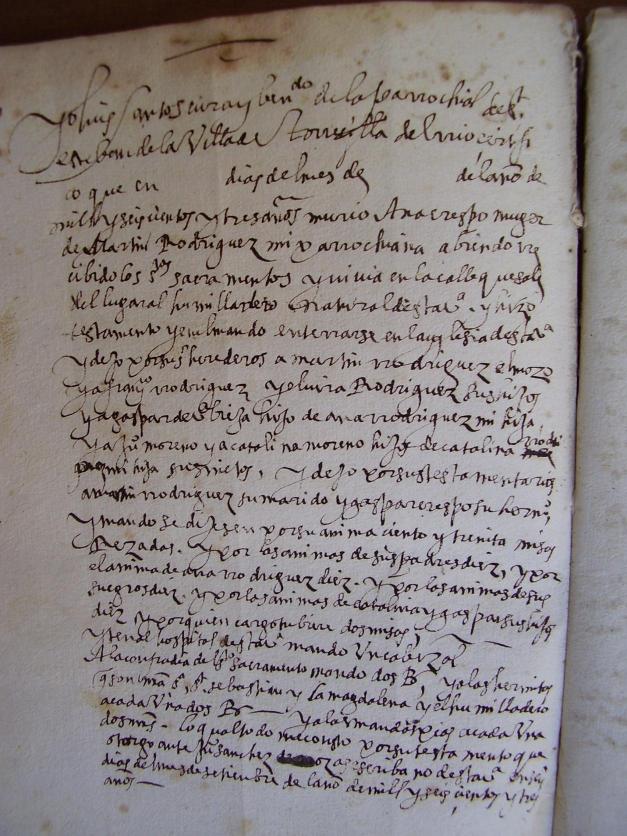 Yo luis santos cura y ben^do de la parrochial de s^t
esteban de la Villa de Torrezilla del rrio certifi
co que en dias del mes de del año de
mill y seisçientos y tres años murio Ana crespo muger
de Martin Rodriguez mi parrochiana abiendo rre
cibido los s^tos sacramentos y viuia en la calle que sale
del lugar al humilladero natural desta v^a. y hizo
testamento y en el mando enterrarse en la yglesia desta v^a
y dejo por sus herederos a martin rrodriguez el mozo
y a fran^co rrodriguez y elvira Rodriguez sus hijos
y a gaspar de hijo de ana rrodriguez mi hija
y a Ju^o moreno y a catalina moreno hijos de catalina rrodri
guez mi hija sus nietos, y dejo por sus testamentarios
a martin rrodriguez su marido y gaspar crespo su herm^o,
y mando se dijesen por su anima ciento y treinta misas
Rezadas. y por las animas de sus padres diez, y por
el anima de ana rrodriguez diez. y por las animas de sus
suegros diez. y por las animas de catalina y gaspar sus hijos
diez y por quien cargo tubiere dos misas,
y en el hospital desta v^a mando Un cabezal
A la confradia del s^mo sacramento mando dos R^s, y a las hermitas
q son s^t sebastian y la magdalena y el humilladero
a cada Una dos R^s y a las mandas pias a cada Una
dos mrs. lo qual todo me consto por su testamento que
otorgo ante Ju^o sanchez escribano desta v^a en
dias del mes de setiembre de l año de mill y seisçientos y tres
años